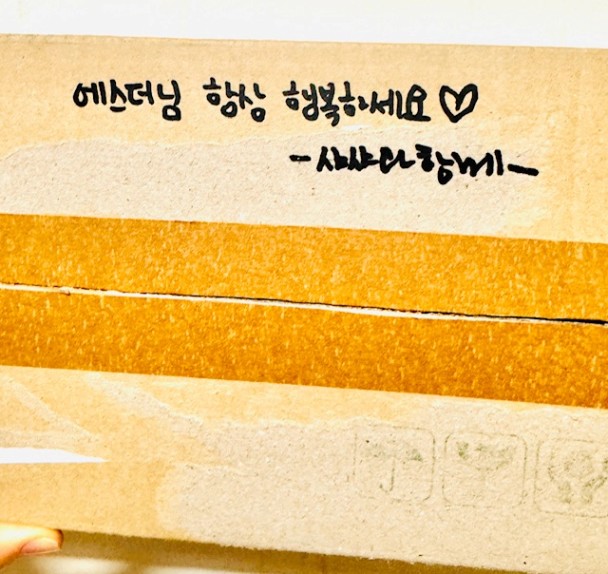 에스더님 항상 행복하세요♡
-샤샤와 함께-